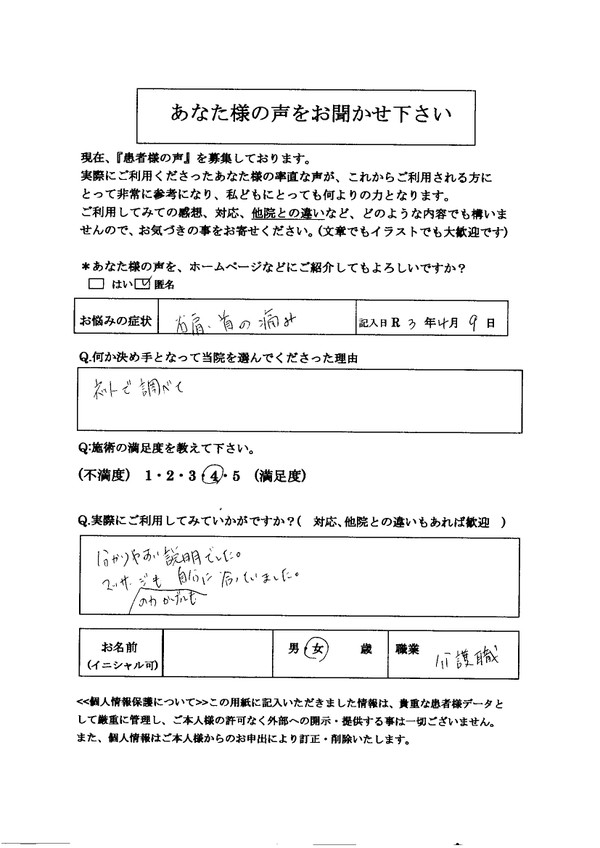 あなた様の声をお聞かせ下さい
現在、『患者様の声』を募集しております。
実際にご利用くださったあなた様の率直な声が、これからご利用される方に
とって非常に参考になり、私どもにとっても何よりの力となります。
ご利用してみての感想、対応、他院との違いなど、どのような内容でも構いま
せんので、お気づきの事をお寄せください。(文章でもイラストでも大歓迎です)
*あなた様の声を、ホームページなどにご紹介してもよろしいですか?
□ はい ☑ 匿名
お悩みの症状 肩、首の痛み 記入日 R 3 年 4 月 9 日
Q.何か決め手となって当院を選んでくださった理由
ネットで調べて
Q:施術の満足度を教えて下さい。
(不満度) 1・2・3・4・5 (満足度)
Q.実際にご利用してみていかがですか?( 対応、他院との違いもあれば歓迎 )
分かりやすい説明でした。
マッサージも 自分に合っていました。
のわかげんも
お名前 男・女 歳 職業 介護職
(イニシャル可)
<<個人情報保護について>>この用紙に記入いただきました情報は、貴重な患者様データと
して厳重に管理し、ご本人様の許可なく外部への開示・提供する事は一切ございません。
また、個人情報はご本人様からのお申出により訂正・削除いたします。